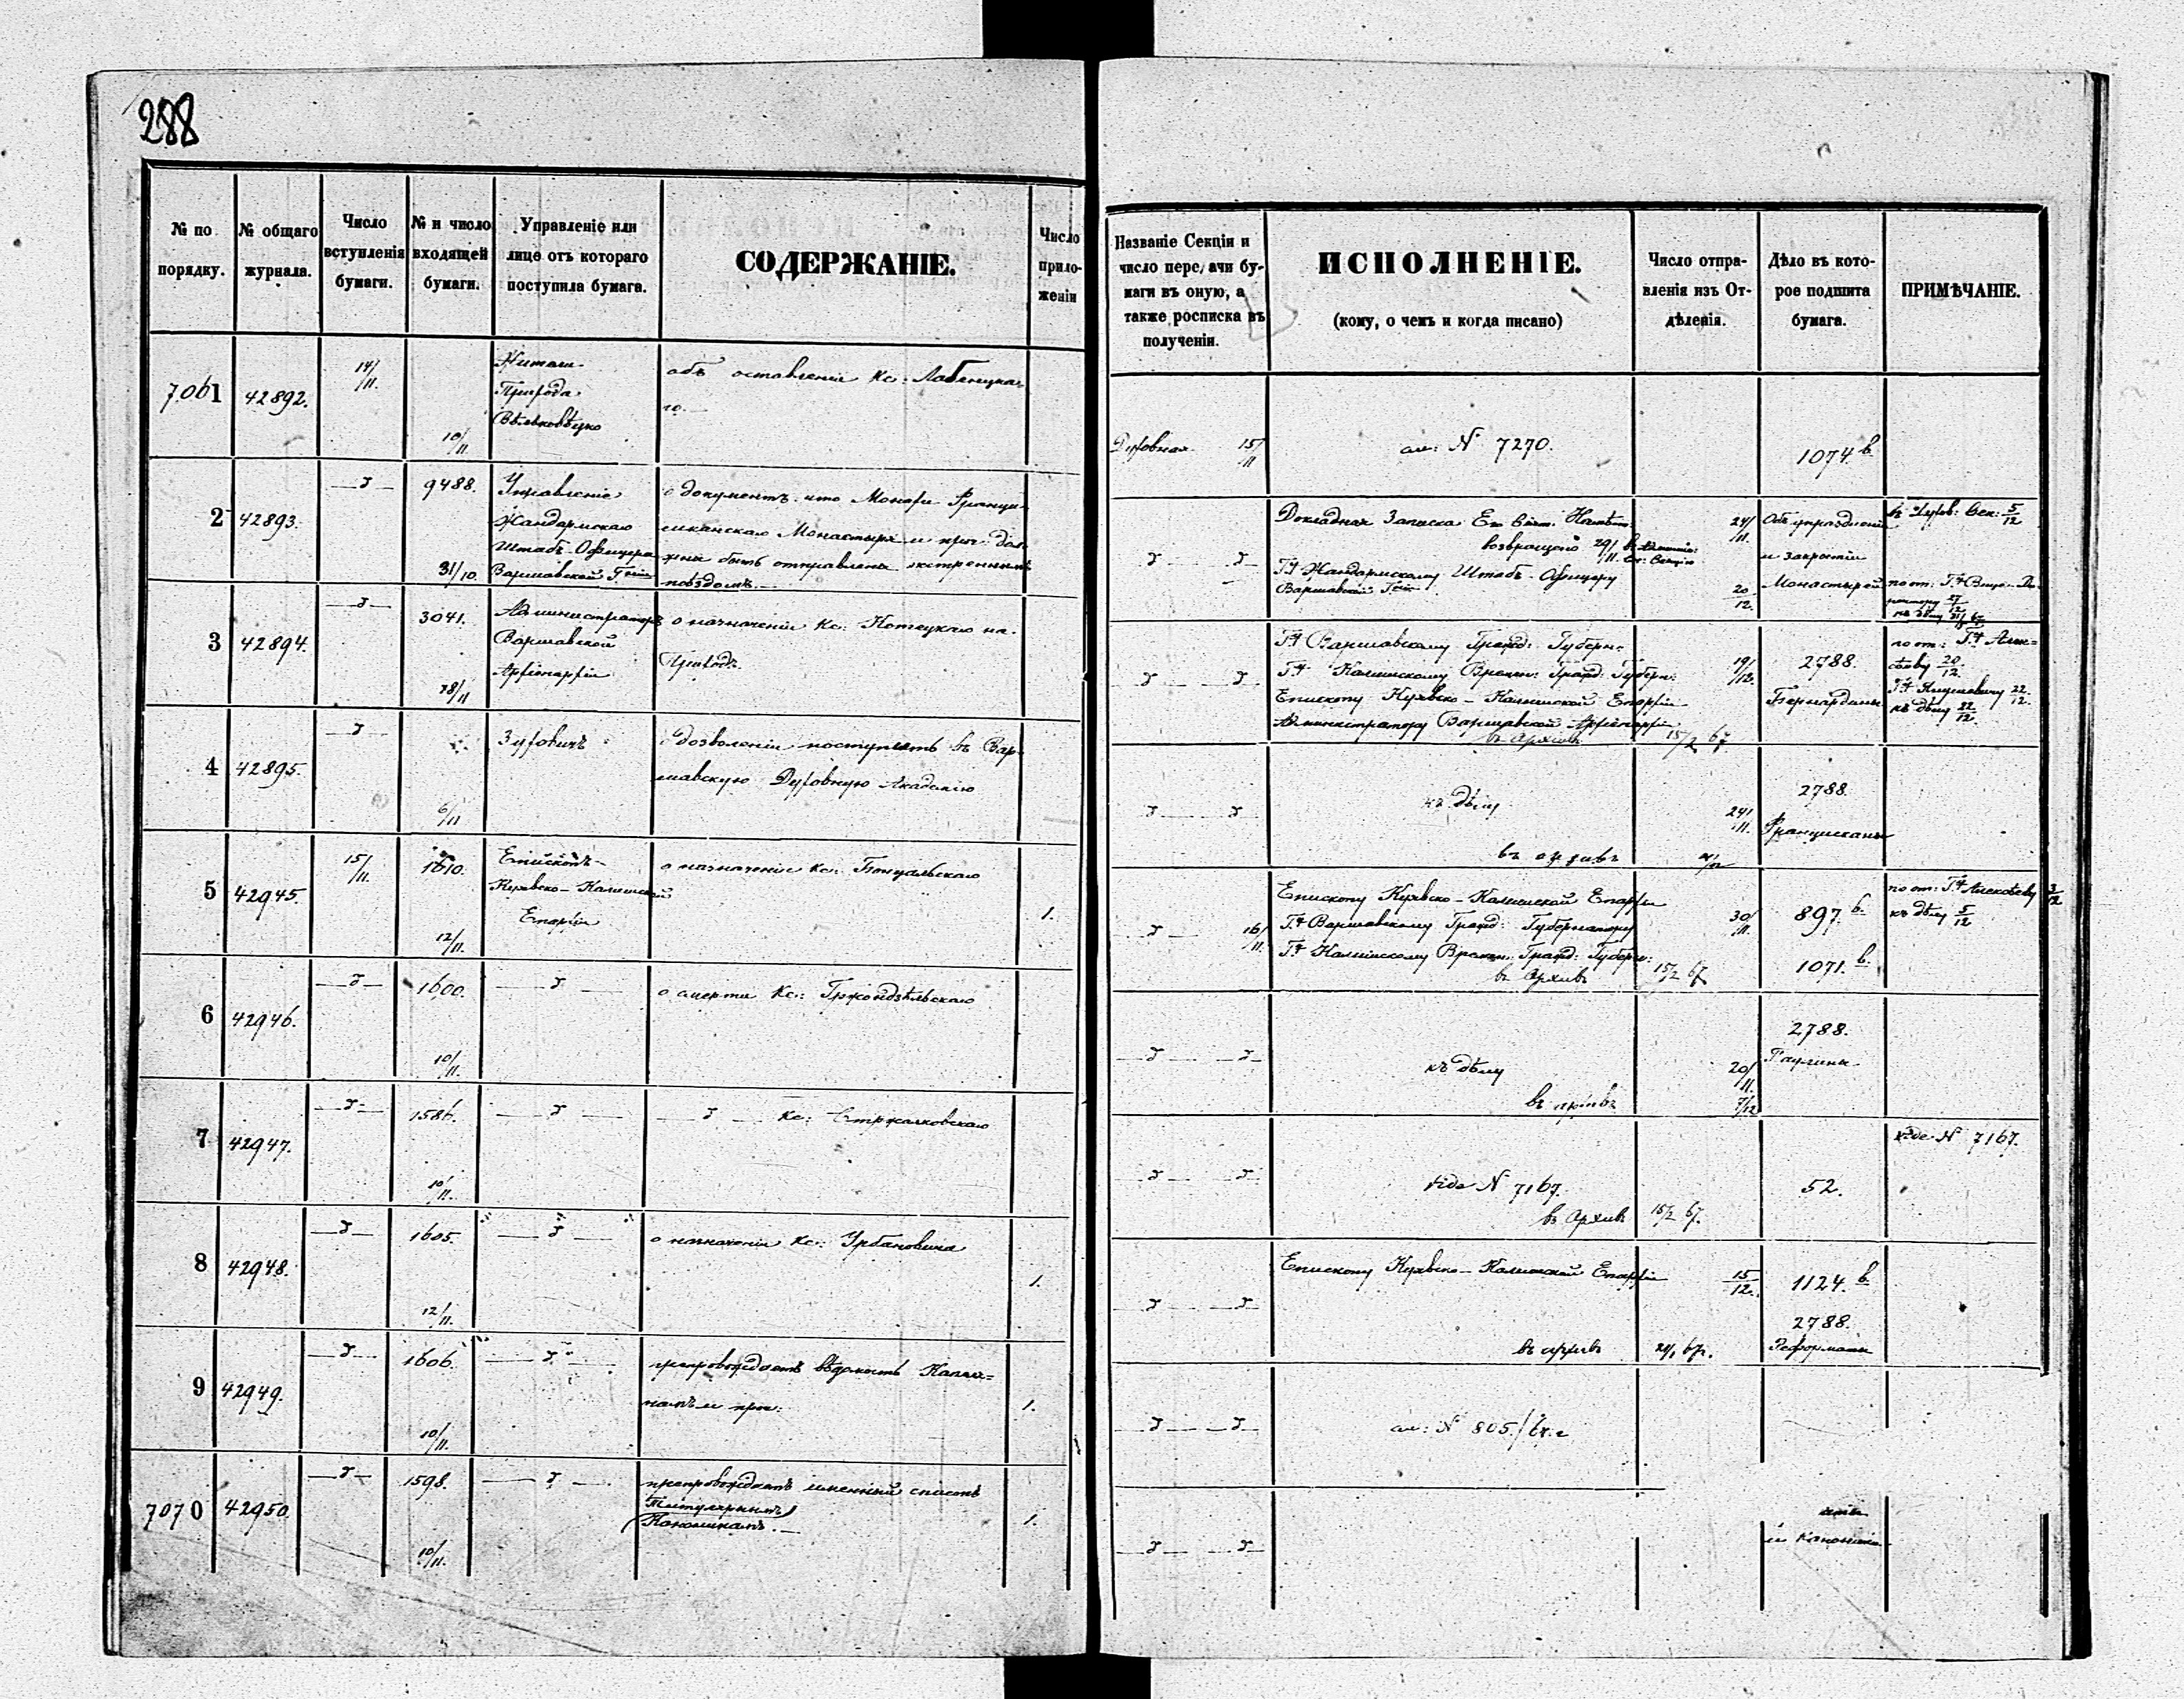 288
№ по порядку.
№ общаго журнала.
Число вступленія бумаги.
№ и число входящей бумаги.
Управленіе или лице отъ котораго поступила бумага.
СОДЕРЖАНІЕ.
Число приложеніи
7061 42892. 14/11. 10/11
Жители
Прихода
объ оставленіи Кс:
го.—
2 42893. —"— 9488. 31/10.
Управленіе
Жандармскаго
Штабъ-Офицера
Варшавской Гніи
о документѣ что Монахи Франци-
сканскаго Монастыря и проч: дол-
жны быть отправлены экстреннымъ
поѣздомъ.—
3 42894. —"— 3041. 28/11
Администраторъ
Варшавской
Архіепархіи
о назначеніи Кс: Котецкаго на
Приходъ.
4 42895. —"— 6/11
Зуховичъ
о дозволеніи поступить въ Вар-
шавскую Духовную Академію
5 42945. 15/11. 1610. 12/11.
Епископъ
Куявско-Калишской
Епархіи
о назначеніи Кс: Бонцальскаго
1.
6 42946. —"— 1600. —"— 10/11.
о смерти Кс: Гржондзѣльскаго
7 42947. —"— 1586. —"— 10/11.
—"— Кс: Стржалковскаго
8 42948. —"— 1605. —"— 12/11.
о назначеніи Кс: Урбановича
1.
9 42949. —"— 1606. —"— 10/11.
препровождаетъ вѣдомость Капла-
намъ и проч:
1.
7070 42950. —"— 1598. —"— 10/11.
препровождаетъ именный списокъ
Титулярнымъ
Каноникамъ.—
1.
Названіе Секціи и
число передачи бу-
маги въ оную, а
также росписка въ
полученіи.
ИСПОЛНЕНІЕ.
(кому, о чемъ и когда писано)
Число отпра-
вленія изъ От-
дѣленія.
Дѣло въ кото-
рое подшита
бумага.
ПРИМѢЧАНІЕ.
Духовная 15/11
см: N 7270.
1074 в.
—"— —"—
Докладная Записка Ею Сіят. Намѣст.
возвращено 29/11
24/11.
Объ упраздненіи
и закрытіи
Монастырей
въ Духов: Сек: 5/12
Гну Жандармскому Штабъ-Офицеру
Варшавской Гніи
20/12.
—"— —"—
Гну Варшавскому Гражд: Губерн:
Гну Калишскому Времен: Гражд: Губерн:
Епископу Куявско-Калишской Епархіи
Администратору Варшавской Архіепархіи
въ Архивъ 15/2 67
19/12.
2788.
Бернардины
къ дѣлу 22/12.
—"— —"—
къ дѣлу
24/11.
въ архивъ
2788.
Францисканы
—"— 16/11.
Епископу Куявско-Калишской Епархіи
Гну Варшавскому Гражд: Губернатору
Гну Калишскому Времен: Гражд: Губерн:
въ Архивъ 15/2 67
30/11.
897. б.
1071. в.
по от: Гну Алексѣеву 3/12
къ дѣлу 5/12
—"— —"—
къ дѣлу
20/11.
въ архивъ
7/12
2788.
Паулины
—"— —"—
vide N 7167.
въ Архивъ 15/2 67.
52.
vide N 7167.
—"— —"—
Епископу Куявско-Калишской Епархіи
15/12.
въ архивъ
1124. в.
2788.
Реформаты
—"— —"—
см: N 805.
—"— —"—
и Каноники